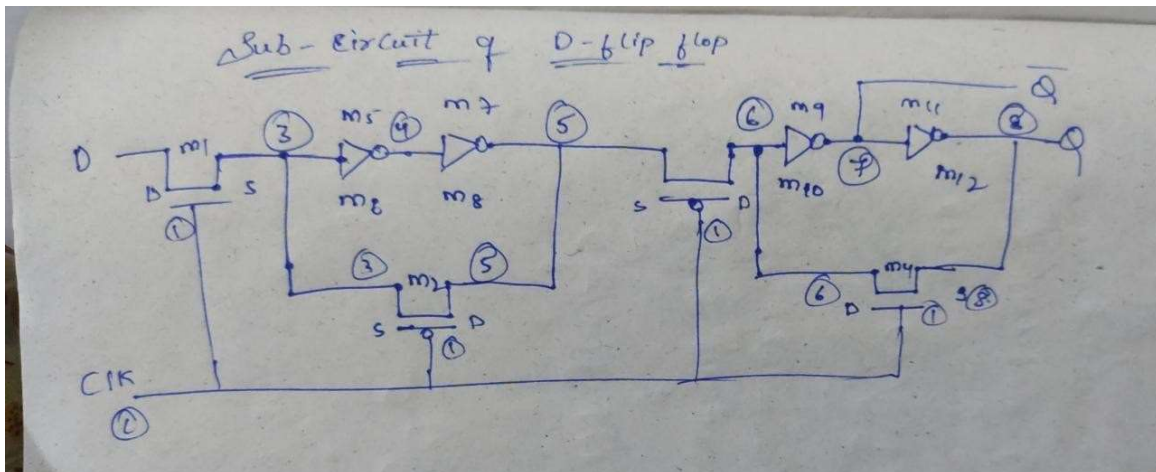 Sub-circuit of D-flip flop
Q
D m1 3 m5 4 m7 5 6 m9 7 m11 8 Q
D S 1
m6 m8
S D 1
m10 m12
3 m2 5
S D 1
6 m4 S 8
D 1
Clk
2